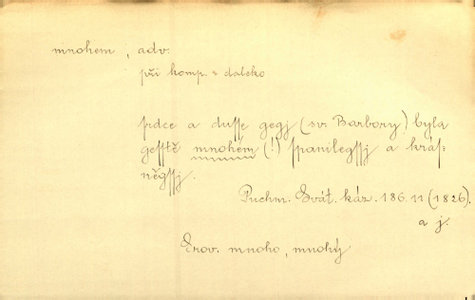 mnohem, adv.
při komp. = daleko
srdce a dusse gegj (sv. Barbory) byla
gesstě mnohem (!) spanilegssj a krás-
něgssj.
Puchm. Svát. káz. 186.11 (1826).
a j.
Srov. mnoho, mnohý